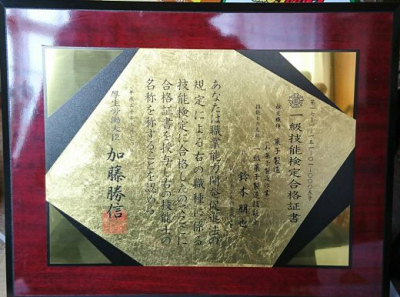 一級技能検定合格証書
菓子製造
鈴木
あなたは職業能力開発促進法の
規定による右の職種に係る
技能検定に合格したのでここに
合格証書を授与し右の技能士の
名称を称することを認める
厚生労働大臣
加藤勝信